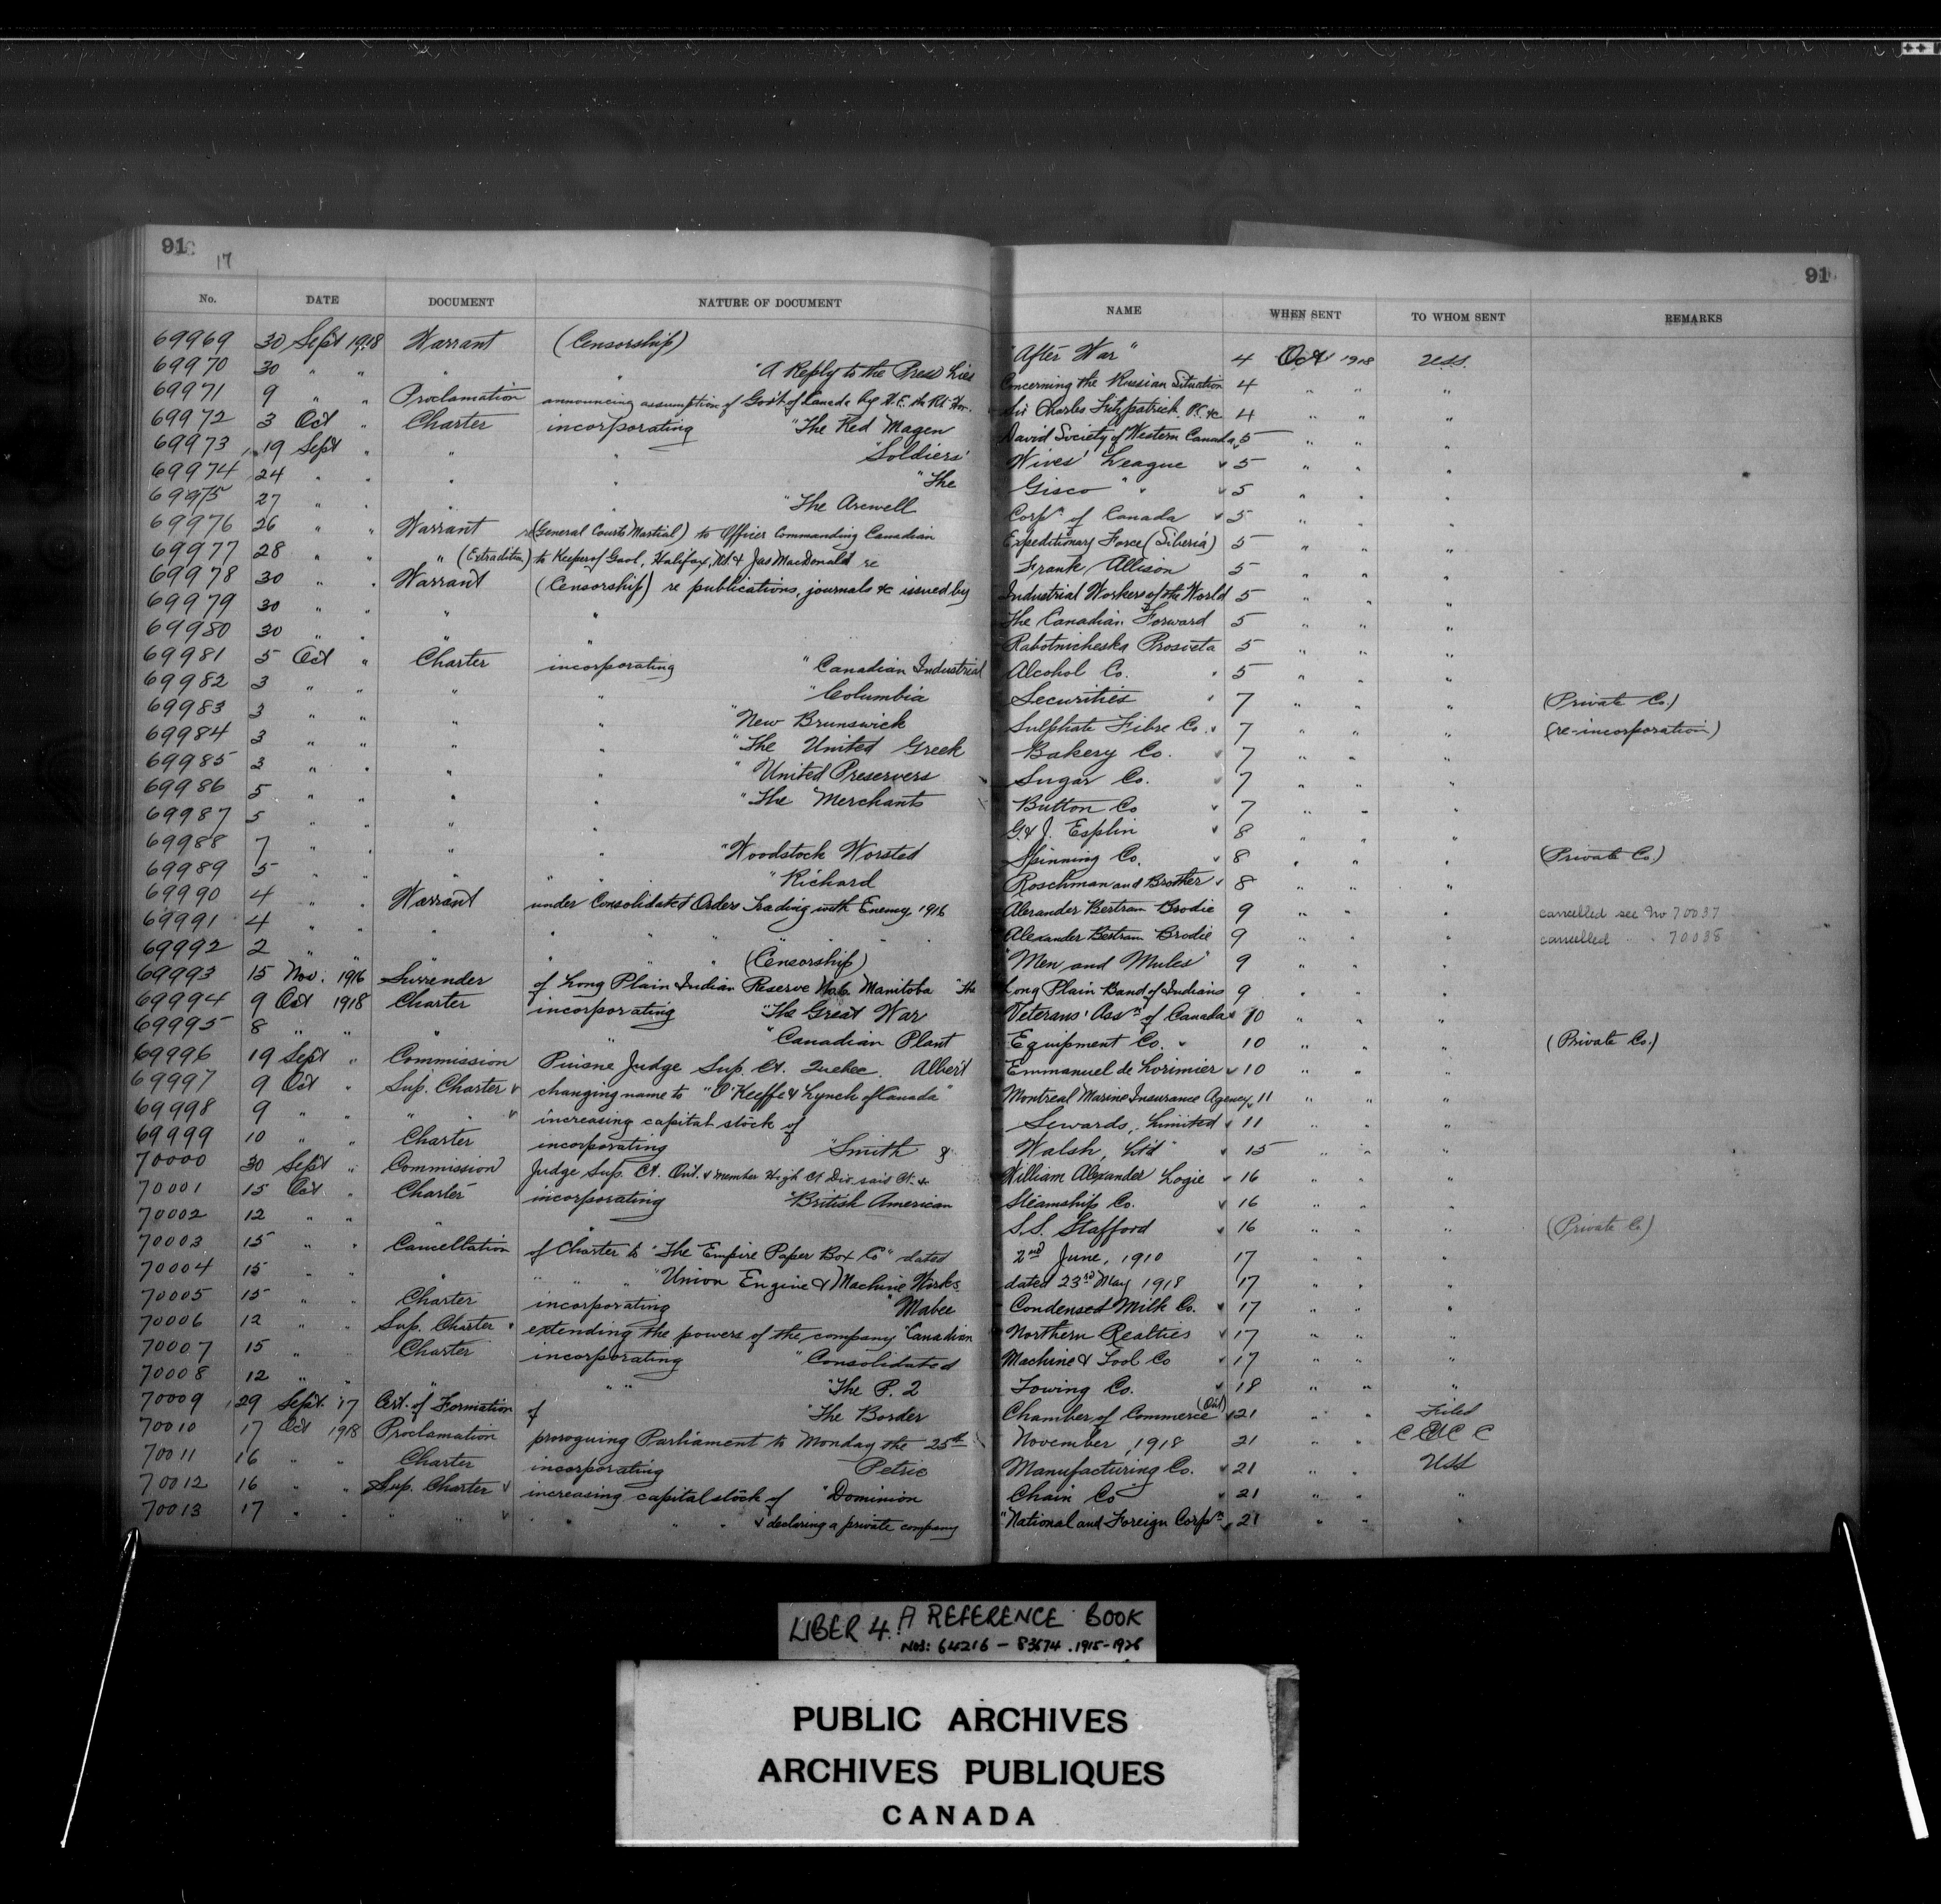 91
17
91
No. DATE DOCUMENT NATURE OF DOCUMENT NAME WHEN SENT TO WHOM SENT REMARKS
69969 30 Sept 1918 Warrant (Censorship) "After War" 4 Oct 1918 USS.
69970 30 " " " " "A Reply to the Press Lies Concerning the Russian Situation 4 " " "
69971 9 " " Proclamation announcing assumption of Gov't of Canada by H.E. the Rt Hon. Sir Charles Fitzpatrick, P.C. &c 4 " " "
69972 3 Oct " Charter incorporating "The Red Magen David Society of Western Canada 5 " " "
69973 19 Sept " " " "Soldiers' Wives' League 5 " " "
69974 24 " " " " "The Gisco " 5 " " "
69975 27 " " " " "The Arcwell Corpn of Canada 5 " " "
69976 26 " " Warrant re (General Courts Martial) to Officer Commanding Canadian Expeditionary Force (Siberia) 5 " " "
69977 28 " " " (Extradition) to Keeper of Gaol, Halifax, N.S. & Jas MacDonald re Frank Allison 5 " " "
69978 30 " " Warrant (Censorship) re publications, journals &c issued by Industrial Workers of the World 5 " " "
69979 30 " " " " The Canadian Forward 5 " " "
69980 30 " " " " Rabotnicheska Prosveta 5 " " "
69981 5 Oct " Charter incorporating "Canadian Industrial Alcohol Co. " 5 " " "
69982 3 " " " " "Columbia Securities " 7 " " " (Private Co.)
69983 3 " " " " "New Brunswick Sulphate Fibre Co. 7 " " " (re-incorporation)
69984 3 " " " " "The United Greek Bakery Co. 7 " " "
69985 3 " " " " "United Preservers Sugar Co. 7 " " "
69986 5 " " " " "The Merchants Button Co 7 " " "
69987 5 " " " " G. & J. Esplin 8 " " "
69988 7 " " " " "Woodstock Worsted Spinning Co. 8 " " " (Private Co.)
69989 5 " " " " " "Richard Roschman and Brother 8 " " "
69990 4 " " Warrant under Consolidated Orders Trading with Enemy 1916 Alexander Bertram Brodie 9 " " " cancelled see No 70037
69991 4 " " " " " " " Alexander Bertram Brodie 9 " " " cancelled " "
69992 2 " " " " " " (Censorship) "Men and Mules" 9 " " "
69993 15 Nov. 1916 Surrender of Long Plain Indian Reserve Manitoba "The Long Plain Band of Indians 9 " " "
69994 9 Oct 1918 Charter incorporating "The Great War Veterans' Assn of Canada 10 " " "
69995 8 " " " " "Canadian Plant Equipment Co. " 10 " " " (Private Co.)
69996 19 Sept " Commission Puisne Judge Sup. Ct. Quebec. Albert Emmanuel de Lorimier 10 " " "
69997 9 Oct " Sup. Charter changing name to "O'Keeffe & Lynch of Canada" Montreal Marine Insurance Agency 11 " " "
69998 9 " " " " increasing capital stock of Sewards, Limited 11 " " "
69999 10 " " Charter incorporating "Smith & Walsh, Ltd" 15 " " "
70000 30 Sept " Commission Judge Sup. Ct. Ont. & member High Ct Div. said Ct. &c William Alexander Logie 16 " " "
70001 15 Oct " Charter incorporating "British American Steamship Co. 16 " " "
70002 12 " " " " S.S. Stafford 16 " " " (Private Co)
70003 15 " " Cancellation of Charter to "The Empire Paper Box Co" dated 2nd June, 1910 17 " " "
70004 15 " " " " " " "Union Engine & Machine Works dated 23rd May 1918 17 " " "
70005 15 " " Charter incorporating "Mabee Condensed Milk Co. 17 " " "
70006 12 " " Sup. Charter extending the powers of the company "Canadian Northern Realties 17 " " "
70007 15 " " Charter incorporating "Consolidated Machine & Tool Co 17 " " "
70008 12 " " " " " "The P. 2 Towing Co. 18 " " "
70009 29 Sept. '17 Cert. of Formation of "The Border Chamber of Commerce (Ont) 21 " " Filed
70010 17 Oct 1918 Proclamation proroguing Parliament to Monday the 25th November, 1918 21 " "
70011 16 " " Charter incorporating Petrie Manufacturing Co. 21 " " USS
70012 16 " " Sup. Charter increasing capital stock of "Dominion Chain Co" 21 " " "
70013 17 " " " " " " " & declaring a private company "National and Foreign Corpn 21 " " "
LIBER 4. A REFERENCE BOOK
NOS: 64216 - 83674 . 1915-1926
PUBLIC ARCHIVES
ARCHIVES PUBLIQUES
CANADA